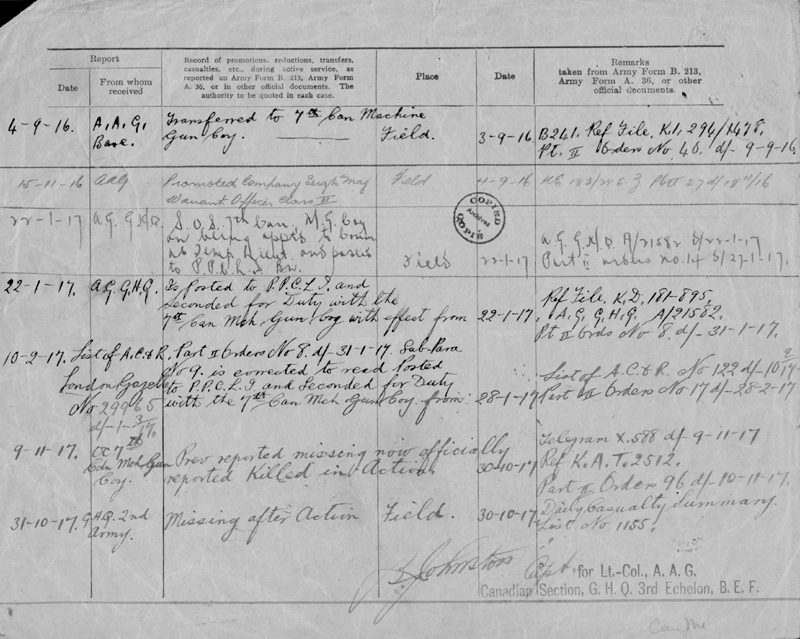 Report
Date
From whom
received
Record of promotions, reductions, transfers,
casualties, etc., during active service, as
reported on Army Form B. 213, Army Form
A. 36, or in other official documents. The
authority to be quoted in each case.
Place
Date
Remarks
taken from Army Form B. 213,
Army Form A. 36, or other
official documents.
4-9-16. A.A.G. Transferred to 7th Can Machine
Base. Gun Coy. Field. 3-9-16. B241. Ref File. K1. 294/1478.
Pt. II Orders No 40. d/- 9-9-16.
15-11-16 AAG Promoted Company Sergt Maj Field 4-9-16
Warrant Officer Class II
COPIED
Archives
COPIÉ
22-1-17 A.G. G.H.Q. S.O.S. 7th Can. M.G. Coy
on being apptd to Comm
as Temp. Lieut. and posted
to P.P.C.L.I. Field 22-1-17
A.G. G.H.Q. A/21582 d/22-1-17
Part II orders no. 14 d/27-1-17.
22-1-17. A.G. G.H.Q. Is Posted to P.P.C.L.I. and
Seconded for Duty with the
7th Can Mch Gun Coy with effect from 22-1-17.
Ref File. K.D. 181-895.
A.G. G.H.Q. A/21582.
Pt II Ords No 8. d/- 31-1-17.
10-2-17. List of A.C.&R. Part II Orders No 8. d/- 31-1-17. Sub-Para
No 9. is corrected to read Posted
London Gazette to P.P.C.L.I. and Seconded for Duty
No 29965 with the 7th Can Mch Gun Coy. from 28-1-17
d/-1-3-17.
List of A.C.&R. No 122 d/-10-2-17
Part II Orders No 17 d/- 28-2-17
9-11-17. OC 7th
Cdn Mch Gun
Coy. Prev reported missing now officially
reported Killed in Action. 30-10-17
Telegram X.588 d/- 9-11-17
Ref K.A.T. 2512.
Part II Order 96 d/- 10-11-17.
31-10-17. G.H.Q. 2nd
Army. Missing after Action Field. 30-10-17
Daily Casualty Summary.
List No 1155.
Johnston Capt. for Lt.-Col., A. A. G.
Canadian Section, G. H. Q. 3rd Echelon, B. E. F.